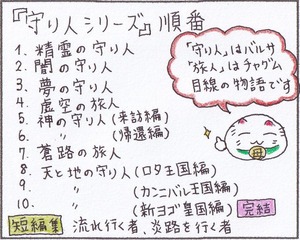 『守り人シリーズ』順番
1. 精霊の守り人
2. 闇の守り人
3. 夢の守り人
4. 虚空の旅人
5. 神の守り人(来訪編)
6. 〃 (帰還編)
7. 蒼路の旅人
8. 天と地の守り人(ロタ王国編)
9. 〃 (カンニバル王国編)
10. 〃 (新ヨゴ皇国編) 完結
短編集 流れ行く者、炎路を行く者
「守り人」はバルサ
「旅人」はチャグム
目線の物語です